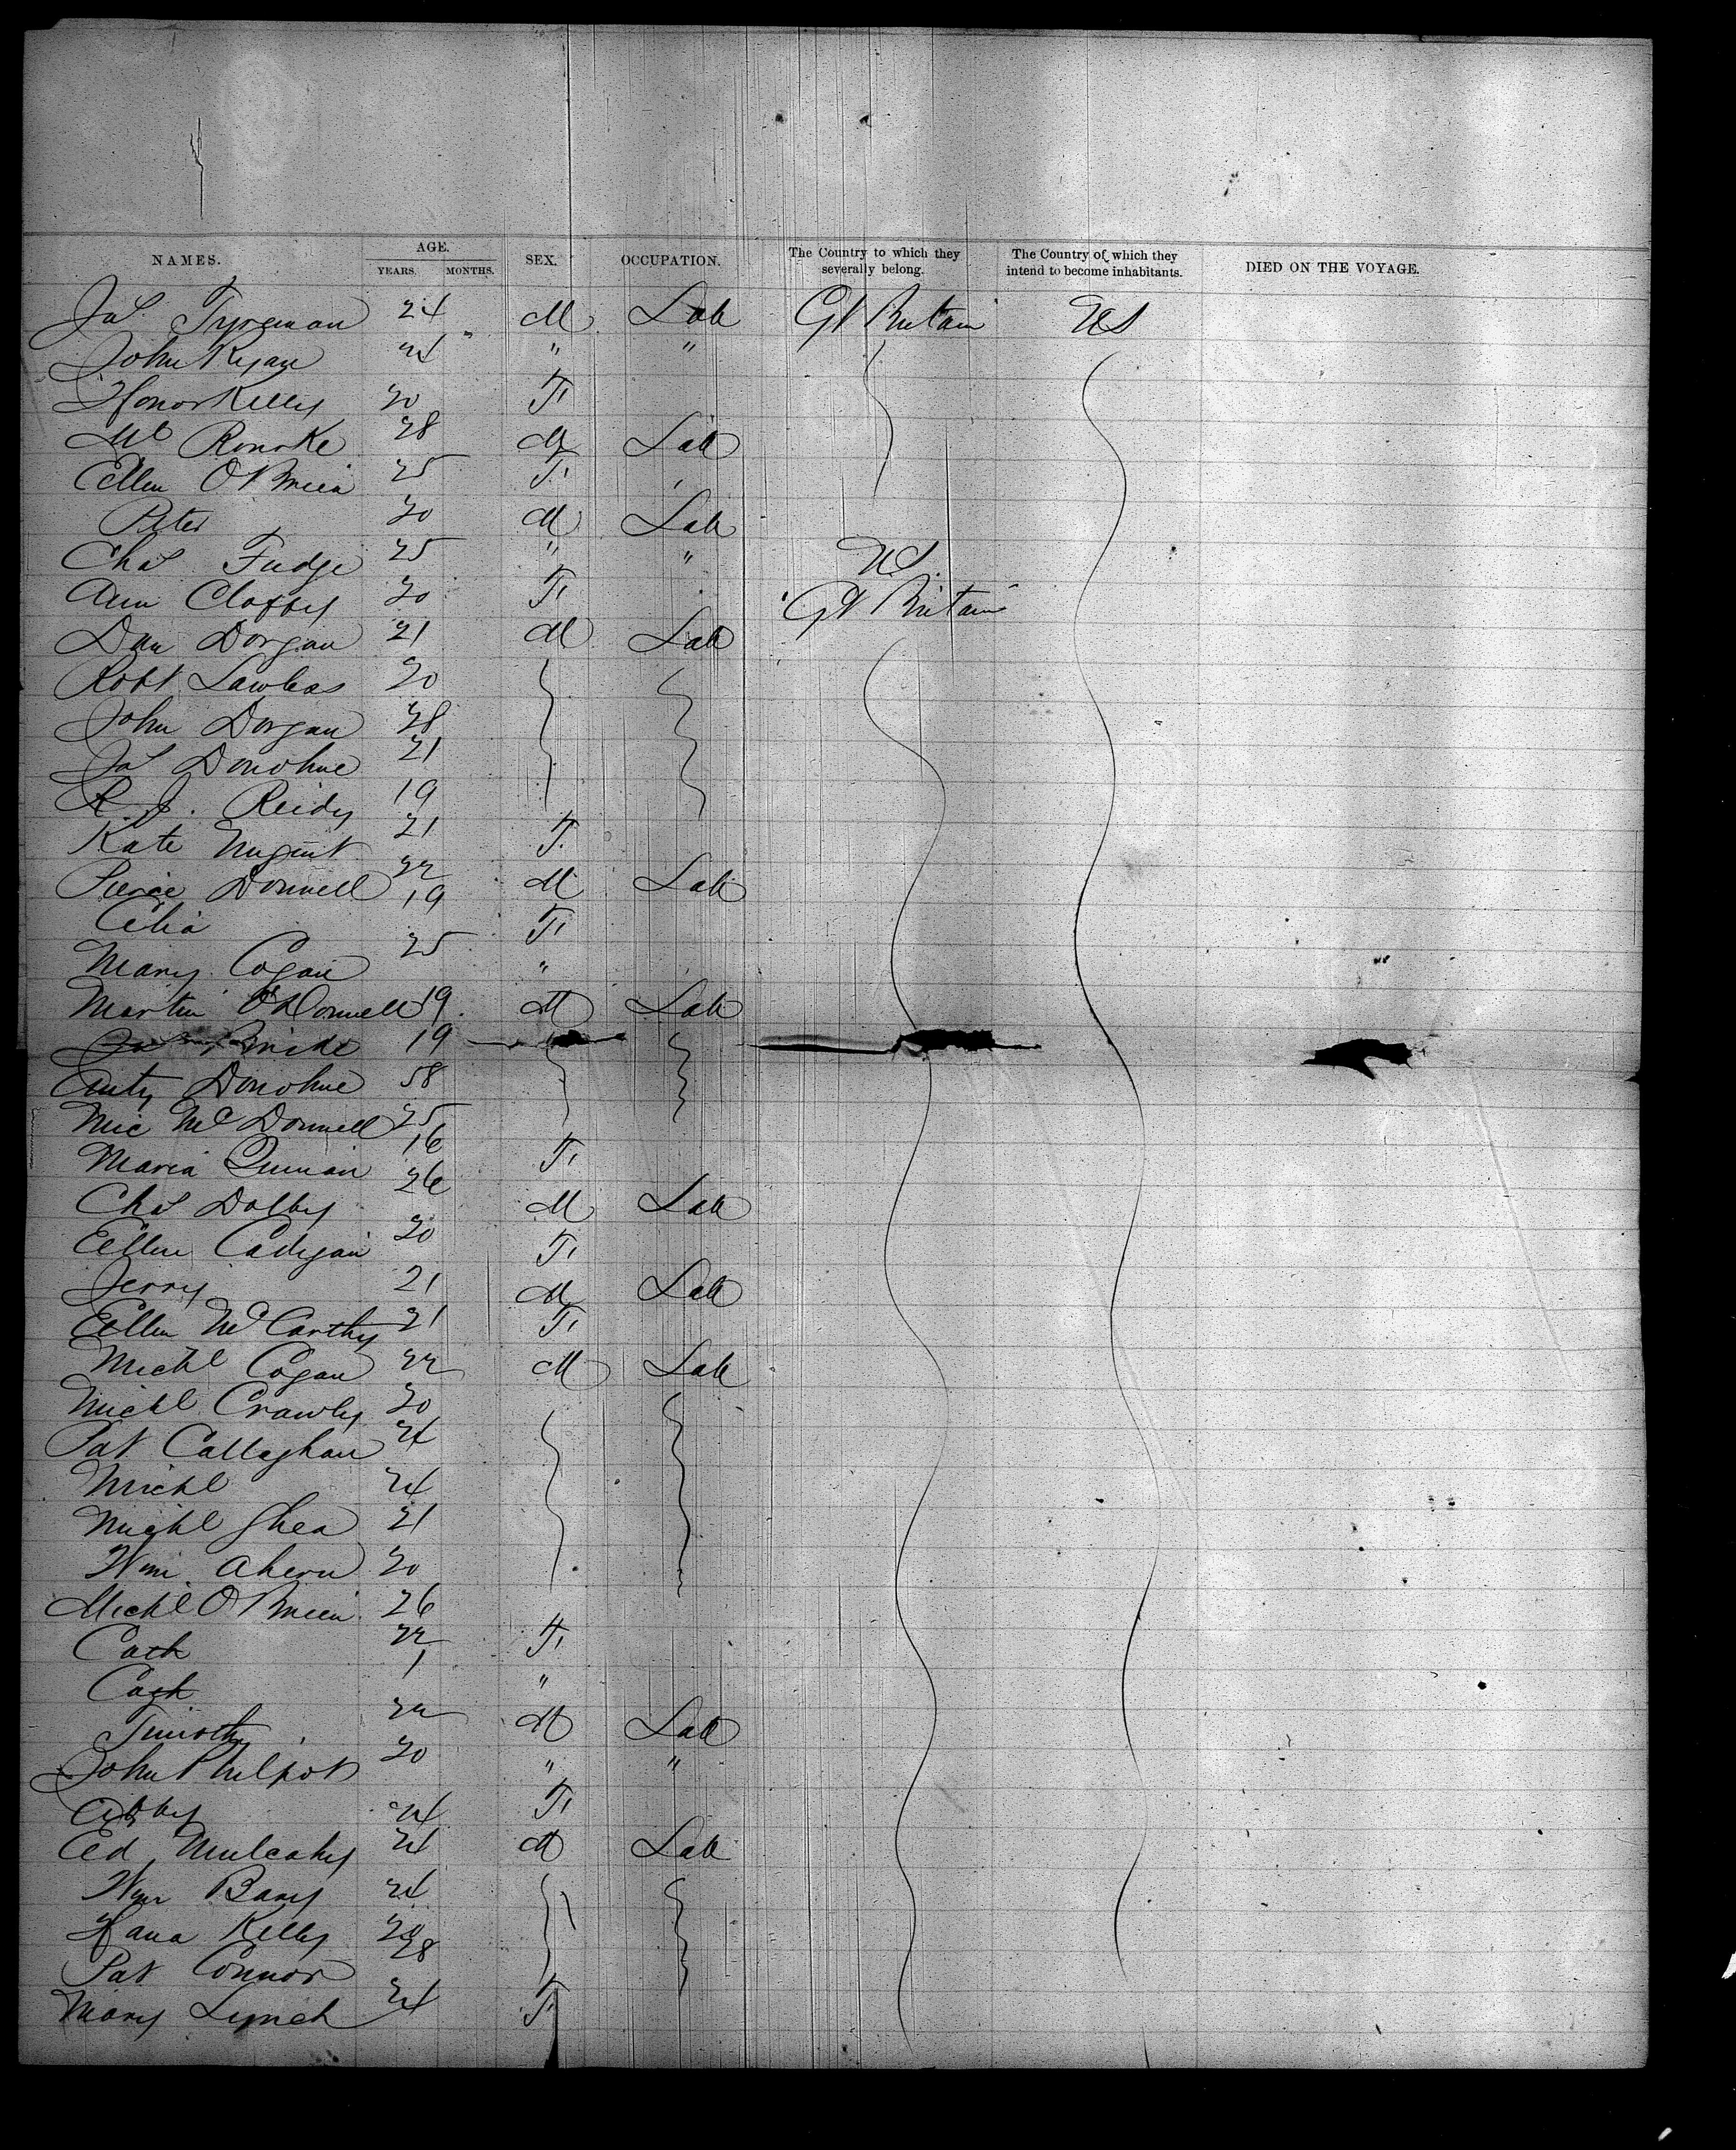 NAMES. AGE. YEARS. MONTHS. SEX. OCCUPATION. The Country to which they severally belong. The Country of which they intend to become inhabitants. DIED ON THE VOYAGE.
Jas 24 " M Lab Gt Britain US
John Ryan 24 " "
Honor Kelly 20 F
Ml Rourke 28 M Lab
Ellen O'Brien 25 F
Peter 20 M Lab
Chas Fudge 25 " " US
Ann Claffey 20 F Gt Britain
Dan Dorgan 21 M Lab
Robt Lawless 20
John Dorgan 28
Jas Donohue 21
R. J. Reidy 19
Kate Nugent 21 F
Pierce Donnell 22 M Lab
Celia 19 F
Mary Cogan 25 "
Martin O'Donnell 19 M Lab
19
Anty Donohue 58
Mic McDonnell 25
Maria 16 F
Chas Dolby 26 M Lab
Ellen Cadigan 20 F
Jerry 21 M Lab
Ellen McCarthy 21 F
Michl Cogan 22 M Lab
Michl Crawly 20
Pat Callaghan 24
Michl 24
Michl Shea 21
Wm Ahern 20
Michl O'Brien 26
Cath 22 F
Cath 1 "
Timothy 22 M Lab
John Philpot 20 " "
Abby 24 F
Ed Mulcahy 24 M Lab
Wm Barry 24
Hana Kelly
Pat Connor 28
Mary Lynch 24 F